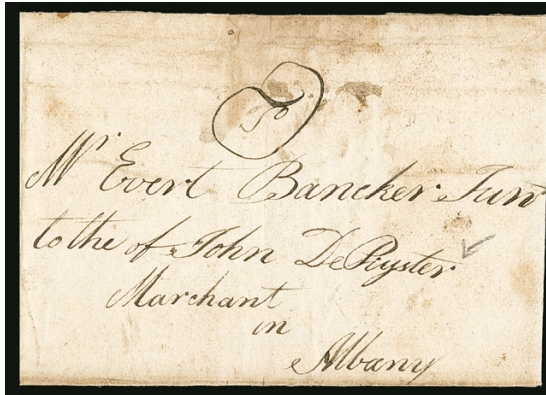 To
Mr Evert Bancker Junr
to the of John DePeyster
Marchant
in
Albany